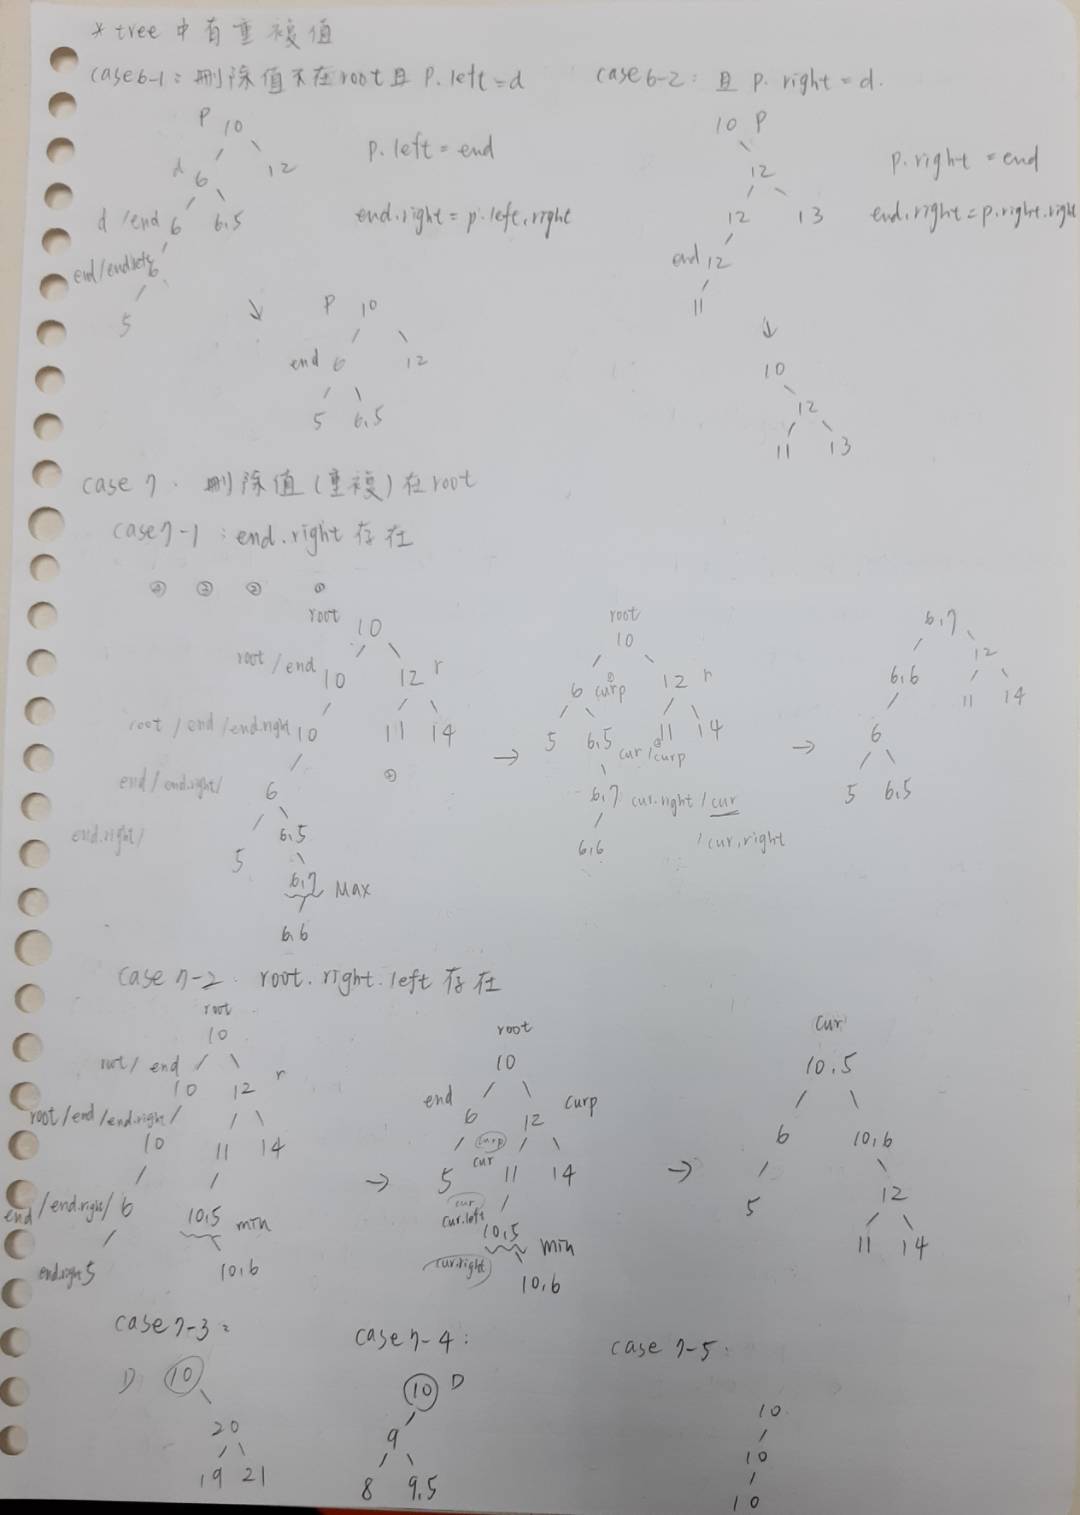 * tree 中有重複值
case6-1: 刪除值不在root且 P.left=d
case6-2: 且 p.right=d.
P 10
d 6 12
p.left = end
d/end 6 6.5
end.right = p.left.right
6
5
P 10
end 6 12
5 6.5
10 P
12
p.right = end
12 13
end.right = p.right.right
end 12
11
10
12
11 13
case 7. 刪除值(重複)在root
case7-1: end.right 存在
④ ③ ② ①
root
10
root/end 10 12 r
root/end/end.right 10 11 14
end/end.right/ 6
end.right/ 5 6.5
6.7 Max
6.6
root
10
6 curp 12 r
5 6.5 11 14
cur/curp
6.7 cur.right/cur
/cur.right
6.6
6.7
6.6 12
11 14
6
5 6.5
case 7-2. root.right.left 存在
root
10
root/end 10 12 r
root/end/end.right/ 10 11 14
end/end.right/ 6 10.5 min
end.right 5 10.6
root
10
end 6 12 curp
curp
5 cur 11 14
cur
cur.left 10.5 min
cur.right 10.6
cur
10.5
6 10.6
5 12
11 14
case 7-3:
D 10
20
19 21
case 7-4:
10 D
9
8 9.5
case 7-5:
10
10
10